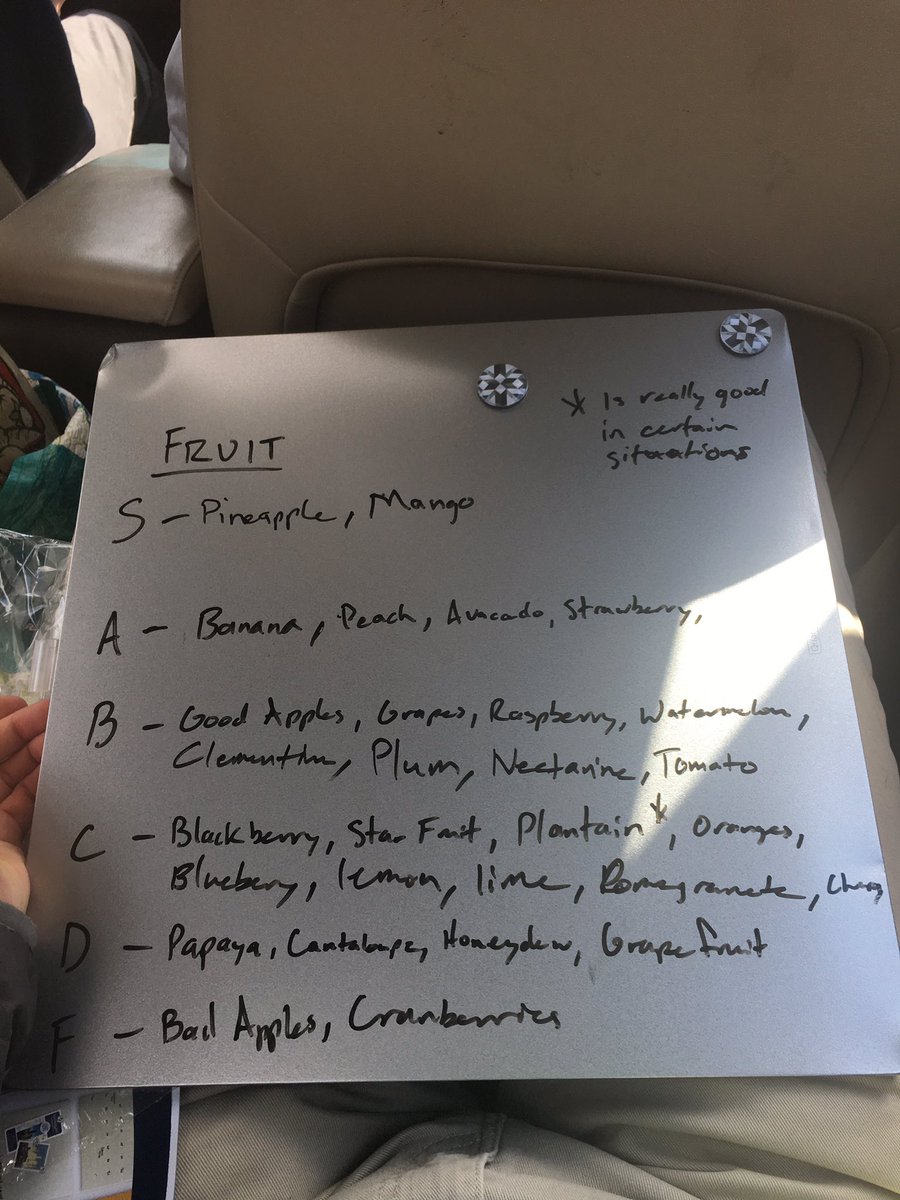 * Is really good
in certain
situations
FRUIT
S - Pineapple, Mango
A - Banana, Peach, Avacado, Strawberry,
B - Good Apples, Grapes, Raspberry, Watermelon,
Clementine, Plum, Nectarine, Tomato
C - Blackberry, Star Fruit, Plantain*, Oranges,
Blueberry, lemon, lime, Pomegranate, Cherry
D - Papaya, Cantaloupe, Honeydew, Grapefruit
F - Bad Apples, Cranberries